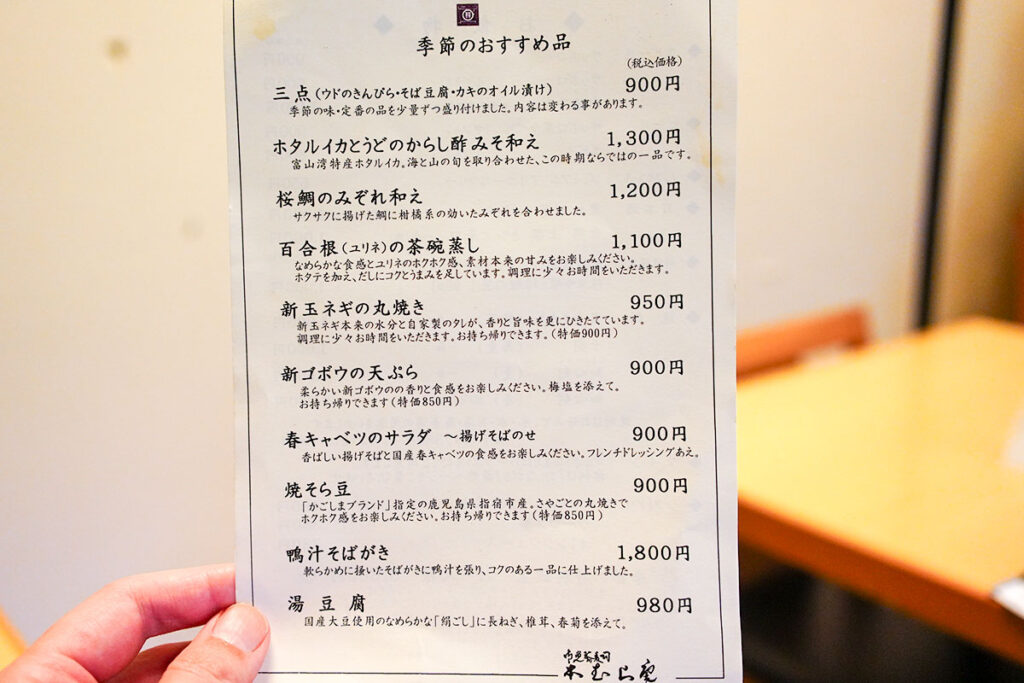 季節のおすすめ品
(税込価格)
三点(ウドのきんぴら・そば豆腐・カキのオイル漬け) 900円
季節の味・定番の品を少量ずつ盛り付けました。内容は変わる事があります。
ホタルイカとうどのからし酢みそ和え 1,300円
富山湾特産ホタルイカ。海と山の旬を取り合わせた、この時期ならではの一品です。
桜鯛のみぞれ和え 1,200円
サクサクに揚げた鯛に柑橘系の効いたみぞれを合わせました。
百合根(ユリネ)の茶碗蒸し 1,100円
なめらかな食感とユリネのホクホク感、素材本来の甘みをお楽しみください。
ホタテを加え、だしにコクとうまみを足しています。調理に少々お時間をいただきます。
新玉ネギの丸焼き 950円
新玉ネギ本来の水分と自家製のタレが、香りと旨味を更にひきたてています。
調理に少々お時間をいただきます。お持ち帰りできます。(特価900円)
新ゴボウの天ぷら 900円
柔らかい新ゴボウのの香りと食感をお楽しみください。梅塩を添えて。
お持ち帰りできます(特価850円)
春キャベツのサラダ ～揚げそばのせ 900円
香ばしい揚げそばと国産春キャベツの食感をお楽しみください。フレンチドレッシングあえ。
焼そら豆 900円
「かごしまブランド」指定の鹿児島県指宿市産。さやごとの丸焼きで
ホクホク感をお楽しみください。お持ち帰りできます(特価850円)
鴨汁そばがき 1,800円
軟らかめに掻いたそばがきに鴨汁を張り、コクのある一品に仕上げました。
湯豆腐 980円
国産大豆使用のなめらかな「絹ごし」に長ねぎ、椎茸、春菊を添えて。
本むら庵